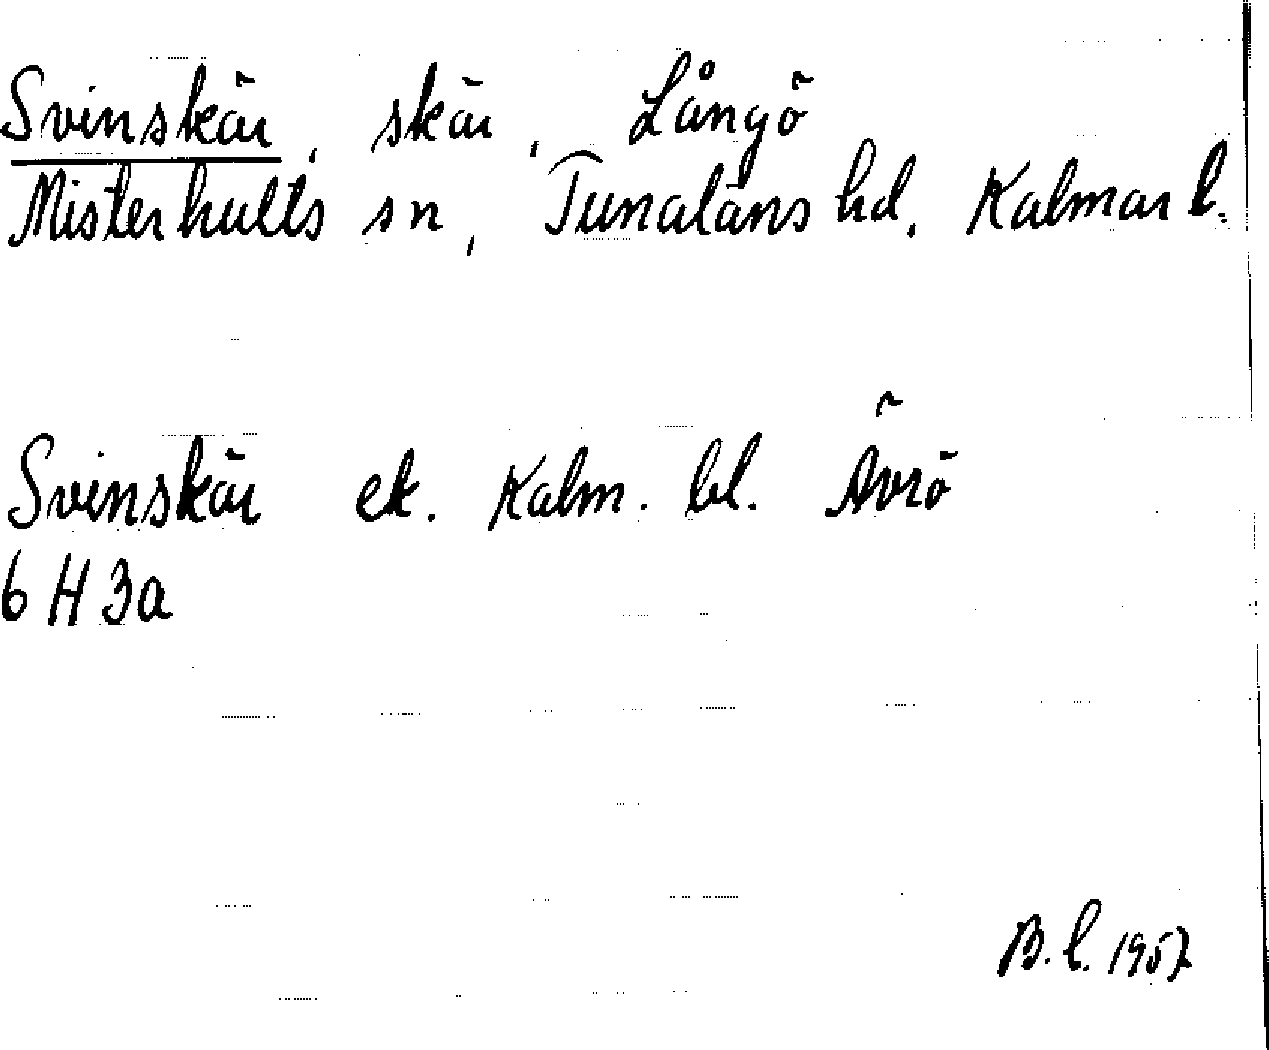 Svinskär, skär, Långö
Misterhults sn, Tunaläns hd. Kalmar l.
Svinskär ek. Kalm. bl. Ävrö
6 H 3a
B.L. 1957